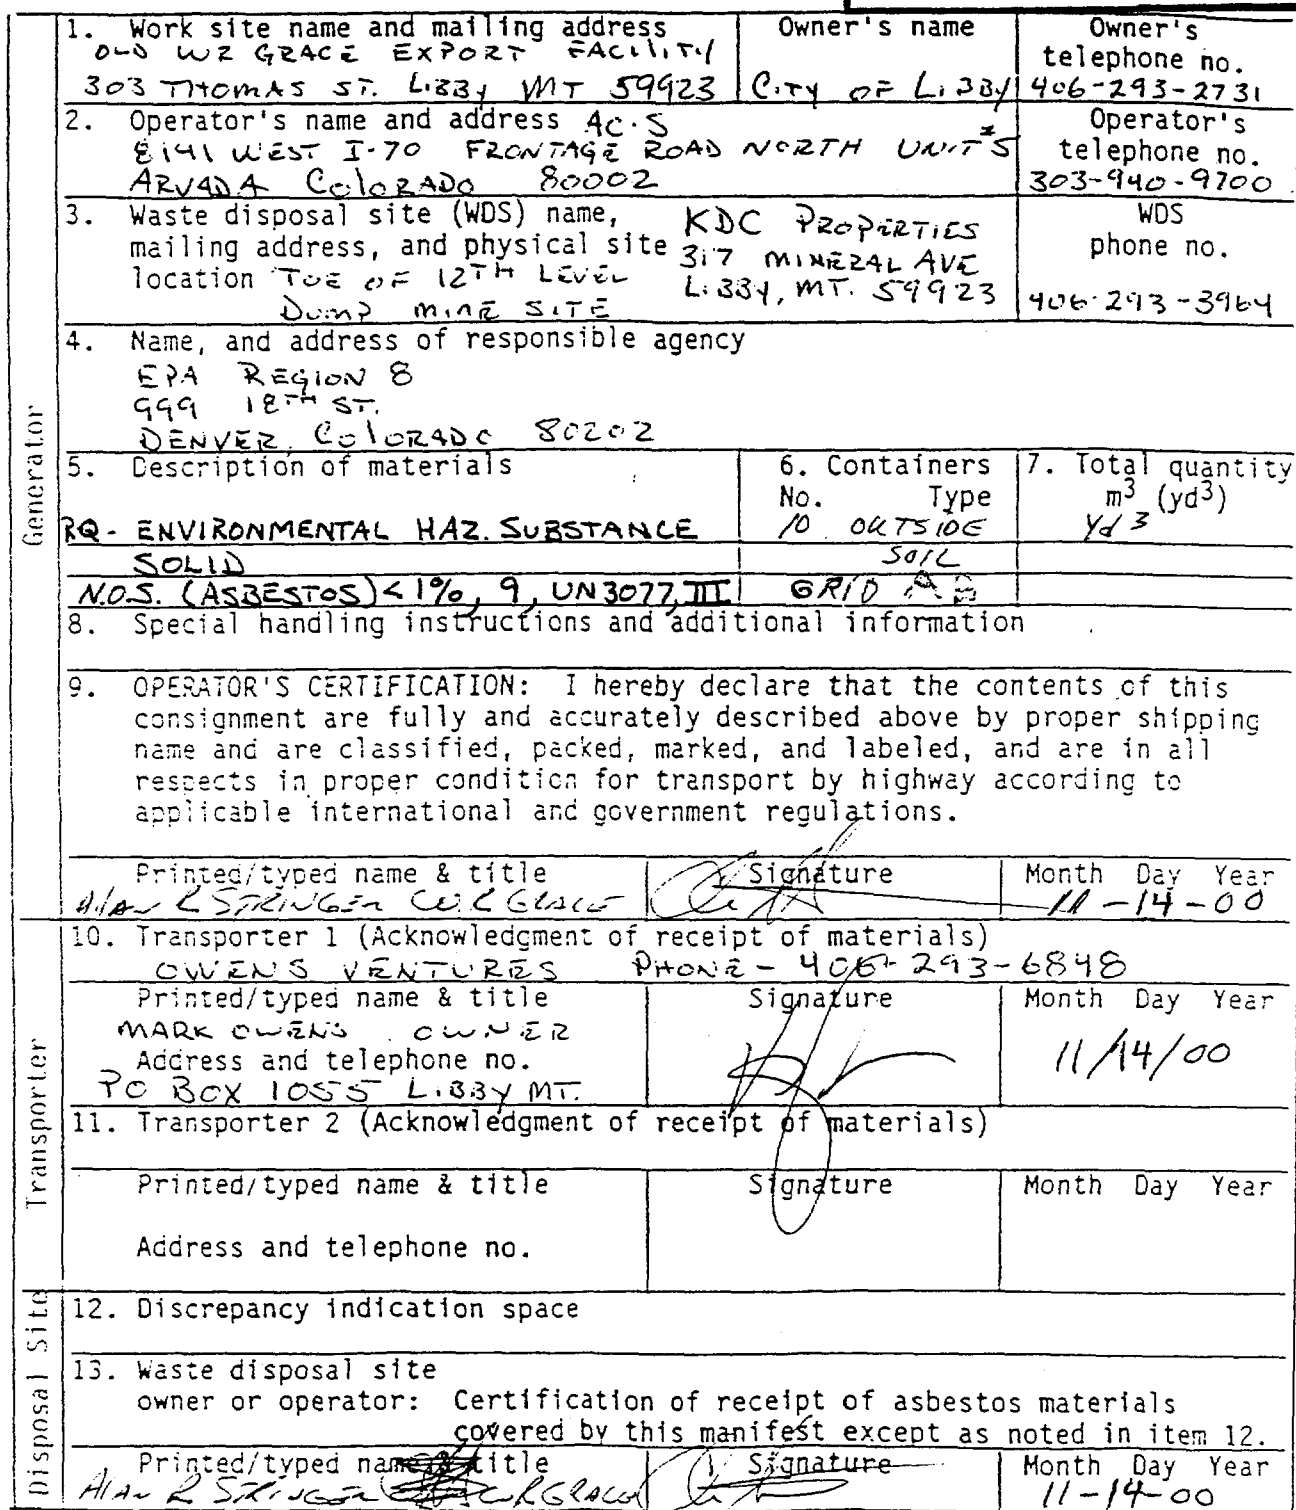 1. Work site name and mailing address
OLD WR GRACE EXPORT FACILITY
303 THOMAS ST. LIBBY MT 59923
Owner's name
CITY OF LIBBY
Owner's
telephone no.
406-293-2731
2. Operator's name and address AC.S
8141 WEST I-70 FRONTAGE ROAD NORTH UNIT #5
ARVADA COLORADO 80002
Operator's
telephone no.
303-940-9700
3. Waste disposal site (WDS) name,
mailing address, and physical site
location TOE OF 12TH LEVEL
DUMP MINE SITE
KDC PROPERTIES
317 MINERAL AVE
LIBBY, MT. 59923
WDS
phone no.
406-293-3964
4. Name, and address of responsible agency
EPA REGION 8
999 18TH ST.
DENVER, COLORADO 80202
Generator
5. Description of materials
RQ- ENVIRONMENTAL HAZ. SUBSTANCE
SOLID
N.O.S. (ASBESTOS) <1%, 9, UN3077, III
6. Containers
No. Type
10 OUTSIDE
SOIL
GRID
7. Total quantity
m3 (yd3)
Yd 3
8. Special handling instructions and additional information
9. OPERATOR'S CERTIFICATION: I hereby declare that the contents of this
consignment are fully and accurately described above by proper shipping
name and are classified, packed, marked, and labeled, and are in all
respects in proper condition for transport by highway according to
applicable international and government regulations.
Printed/typed name & title
Alan R STRINGER W.R GRACE
Signature
Month Day Year
11-14-00
Transporter
10. Transporter 1 (Acknowledgment of receipt of materials)
OWENS VENTURES PHONE - 406-293-6848
Printed/typed name & title
MARK OWENS OWNER
Address and telephone no.
PO BOX 1055 LIBBY MT.
Signature
Month Day Year
11/14/00
11. Transporter 2 (Acknowledgment of receipt of materials)
Printed/typed name & title
Address and telephone no.
Signature
Month Day Year
Disposal Site
12. Discrepancy indication space
13. Waste disposal site
owner or operator: Certification of receipt of asbestos materials
covered by this manifest except as noted in item 12.
Printed/typed name & title
Alan R STRINGER WRGRACE
Signature
Month Day Year
11-14-00